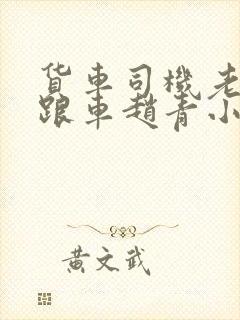 货车司機老
跟車趙青小
黃文武